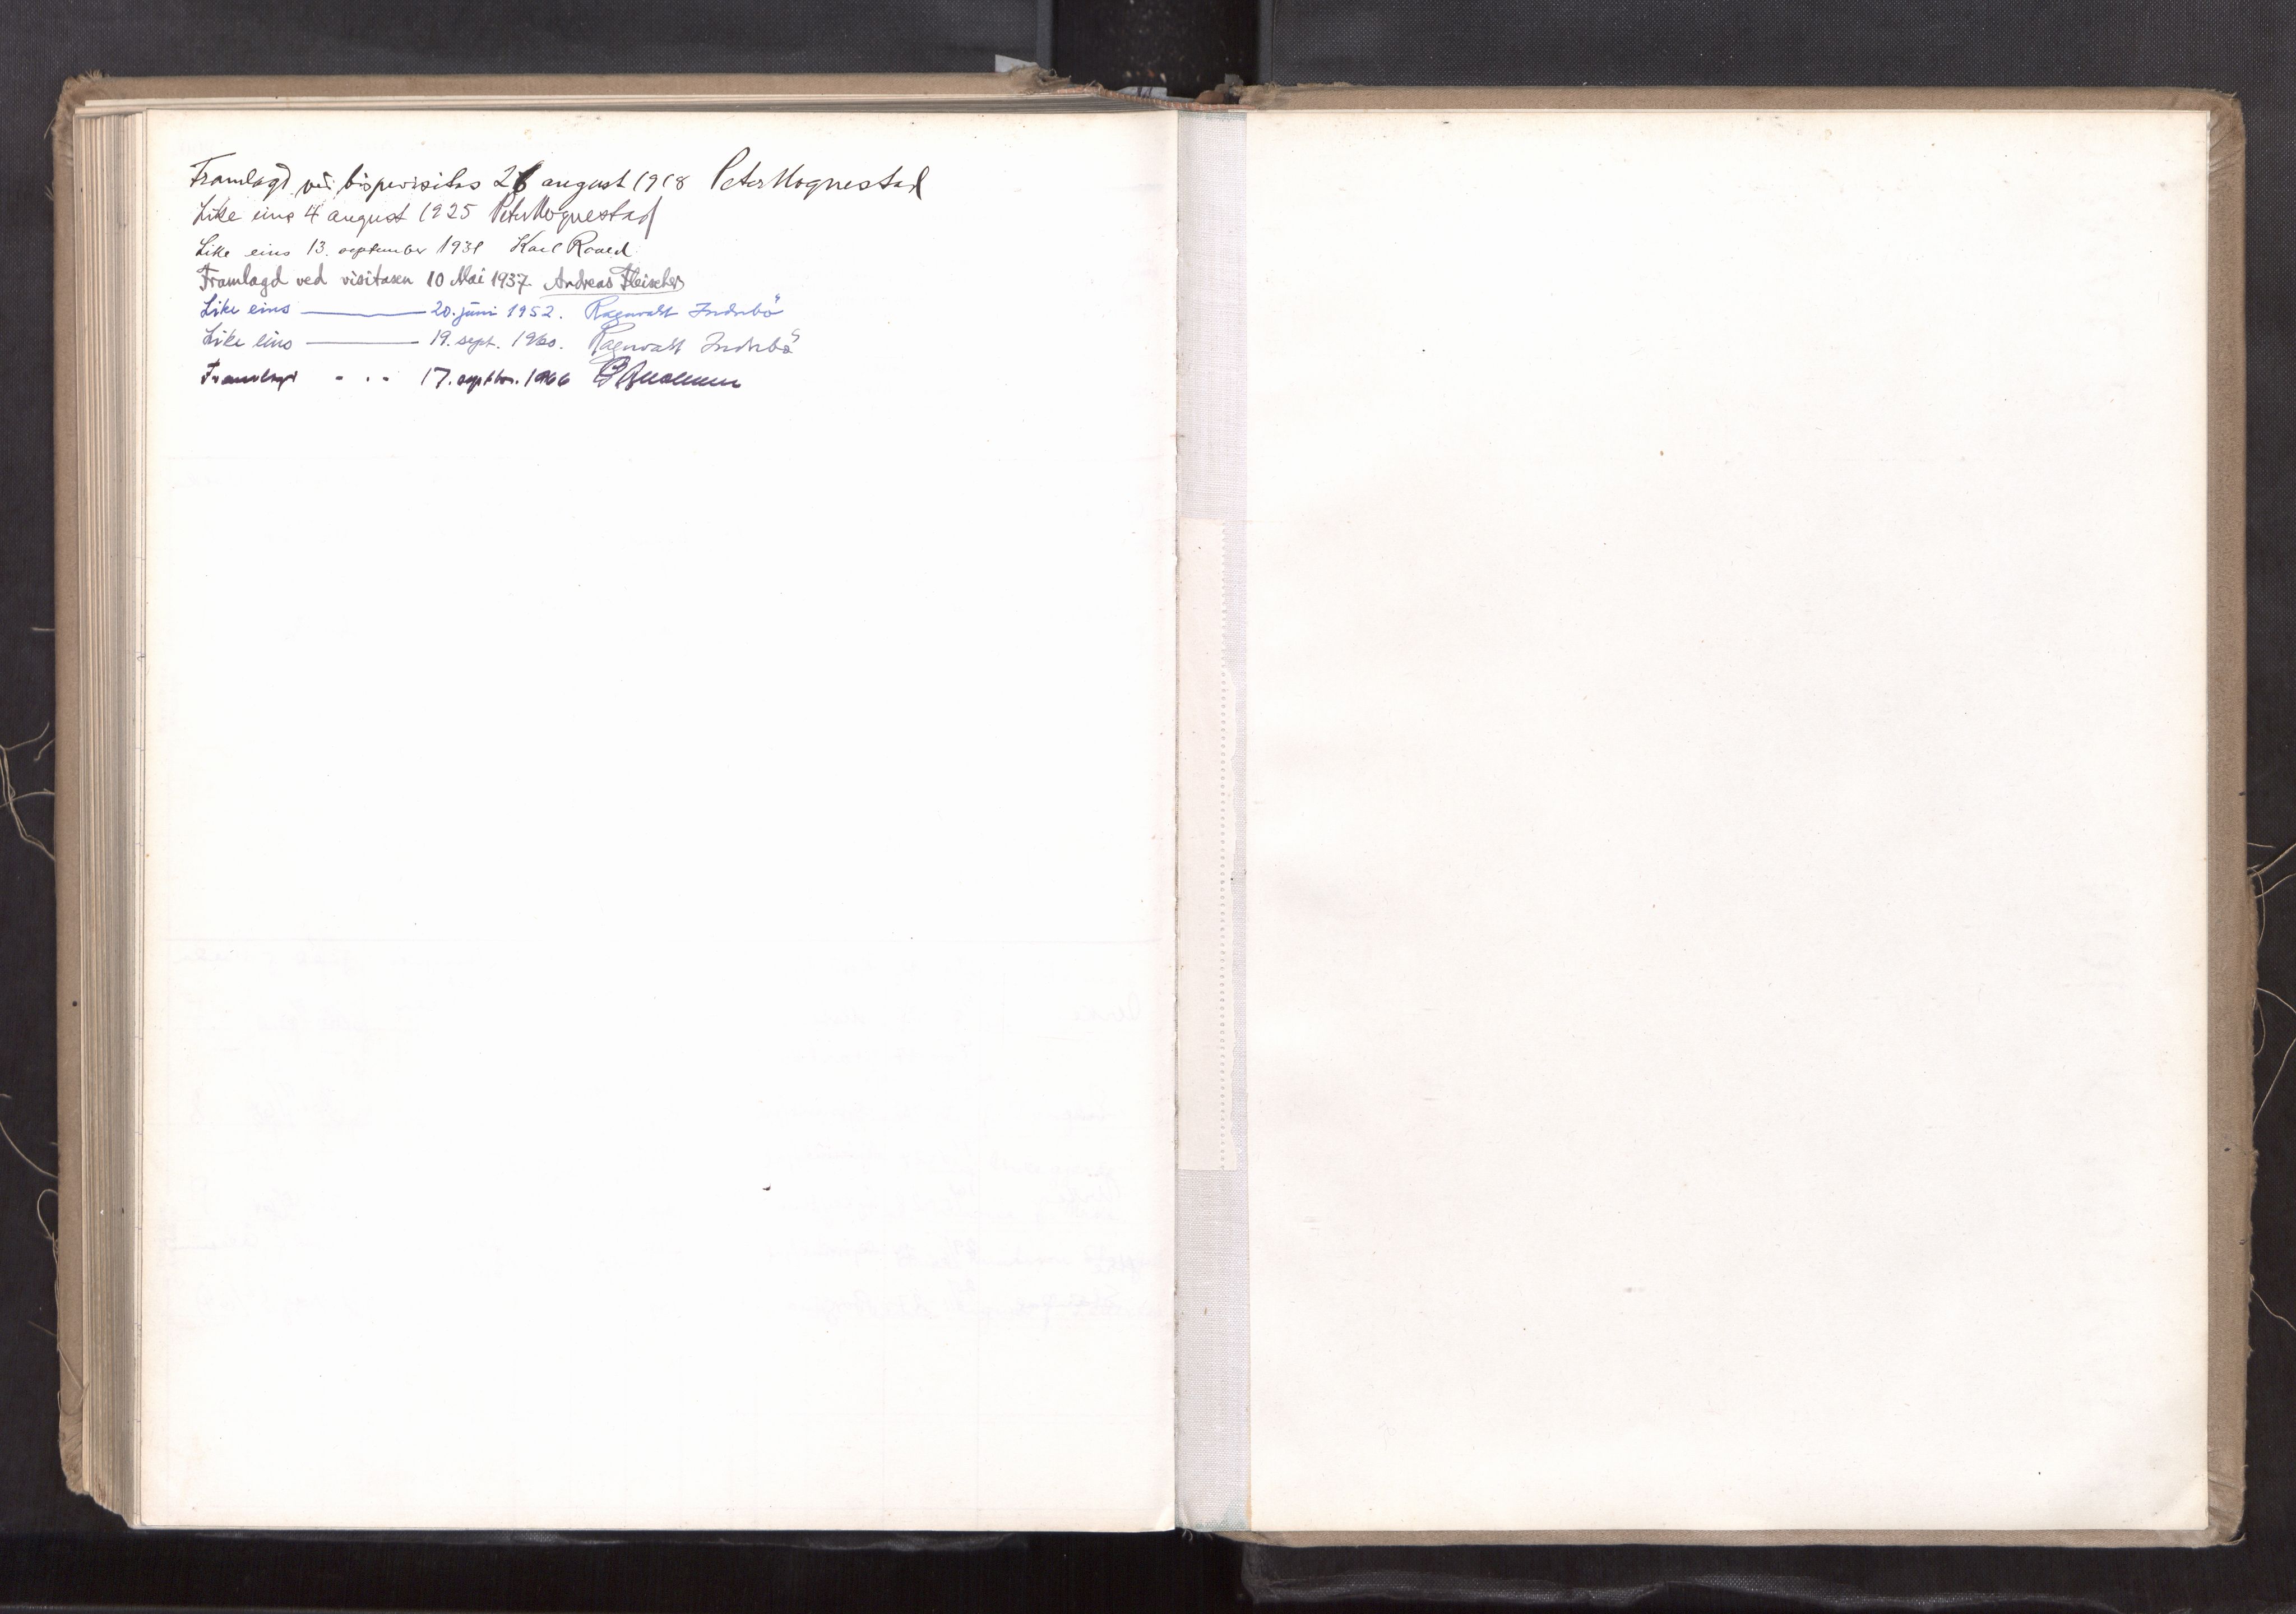 Framlagd ved bispevisitas 26 august 1918 Peter Hognestad
Like eins 4 august 1925 Peter Hognestad
Like eins 13. september 1931 Karl Raaed
Framlagd ved visitasen 10 Mai 1937. Andreas Fleischer
Like eins ——— 20. juni 1952. Ragnvald Indrebö
Like eins ——— 19. sept. 1960. Ragnvald Indrebö
Framlagt - . . 17. septbr. 1966